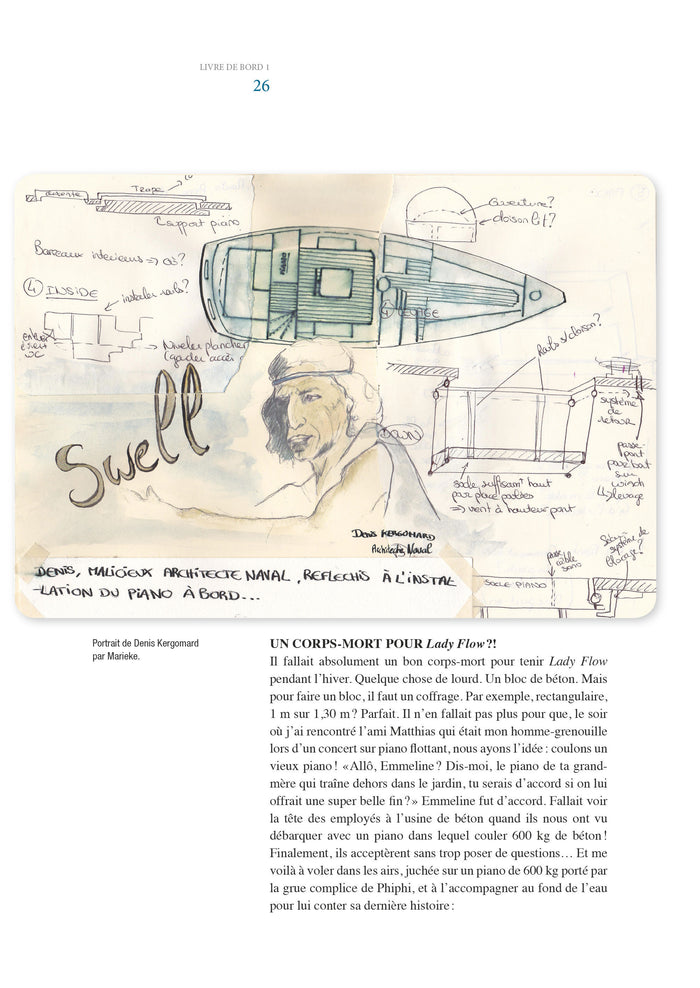 LIVRE DE BORD 1
26
Trape
Support piano
Ouverture?
cloison lit?
Barreaux interieurs => où?
④ INSIDE
installer rails?
Niveler plancher
(garder accès)
PIANO
Rails si cloison?
système
de
retour
passe-
pont
pour bout
sur
winch
levage
DOWN
socle suffisamt haut
par place portées
=> vient à hauteur pont
Swell
Denis KERGOMARD
Architecte Naval
système de
blocage?
passe
cable
sono
SOCLE PIANO
DENIS, MALICIEUX ARCHITECTE NAVAL, REFLECHIS À L'INSTAL
-LATION DU PIANO À BORD...
Portrait de Denis Kergomard
par Marieke.
UN CORPS-MORT POUR Lady Flow ?!
Il fallait absolument un bon corps-mort pour tenir Lady Flow
pendant l'hiver. Quelque chose de lourd. Un bloc de béton. Mais
pour faire un bloc, il faut un coffrage. Par exemple, rectangulaire,
1 m sur 1,30 m ? Parfait. Il n'en fallait pas plus pour que, le soir
où j'ai rencontré l'ami Matthias qui était mon homme-grenouille
lors d'un concert sur piano flottant, nous ayons l'idée : coulons un
vieux piano ! « Allô, Emmeline ? Dis-moi, le piano de ta grand-
mère qui traîne dehors dans le jardin, tu serais d'accord si on lui
offrait une super belle fin ? » Emmeline fut d'accord. Fallait voir
la tête des employés à l'usine de béton quand ils nous ont vu
débarquer avec un piano dans lequel couler 600 kg de béton !
Finalement, ils acceptèrent sans trop poser de questions… Et me
voilà à voler dans les airs, juchée sur un piano de 600 kg porté par
la grue complice de Phiphi, et à l'accompagner au fond de l'eau
pour lui conter sa dernière histoire :